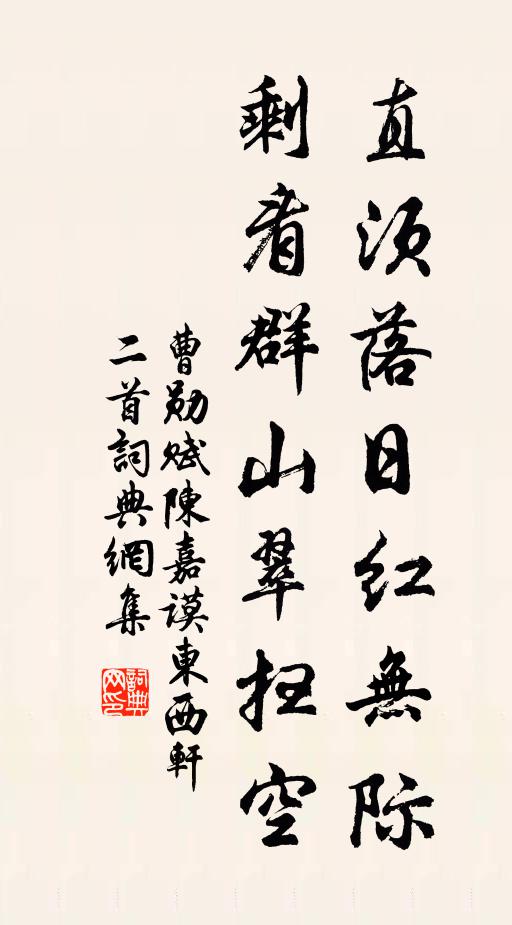 直須落日红無际
剩看群山翠扫空
曹勋赋陳嘉謨東西軒
二首詞典網集
詞典
网印